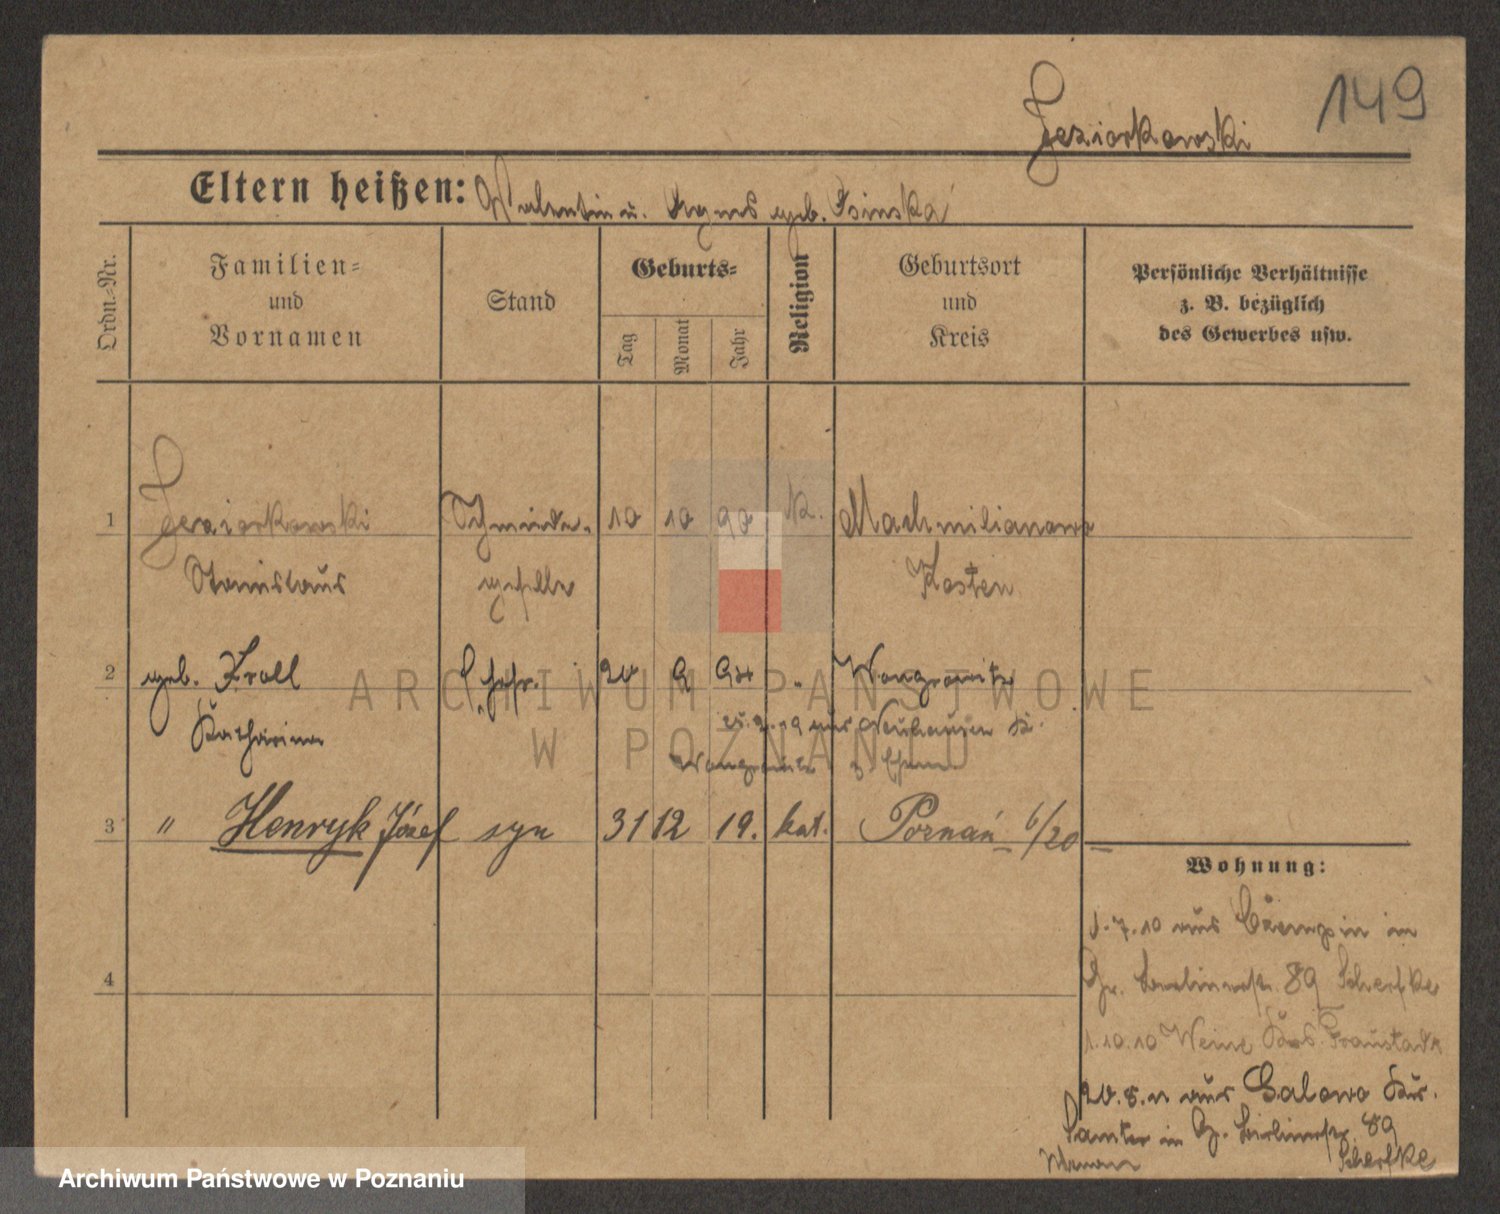 149
Jeziorkowski
Eltern heißen: Valentin u. Agnes geb. Psinska
Ordn.-Nr.
Familien-
und
Vornamen
Stand
Geburts-
Tag
Monat
Jahr
Religion
Geburtsort
und
Kreis
Persönliche Verhältnisse
z. B. bezüglich
des Gewerbes usw.
1 Jeziorkowski Schmiede- 10 10 90 k. Machmilianowo
Stanislaus geselle Kosten
2 geb. Kroll 20 9 " Wongrowitz
Katharina 19 aus Neuhausen K.
Wongrowitz
3 " Henryk Józef syn 31 12 19. kat. Poznań 6/20
Wohnung:
1.7.10 aus Czempin in
Gr. Berlinerstr. 89 Scherfke
4
1.10.10 Weine Krs. Fraustadt
20.5.11 aus Galowo Krs.
Samter in G. Berlinerstr. 89
Scherfke
ARCHIWUM PAŃSTWOWE
W POZNANIU
Archiwum Państwowe w Poznaniu